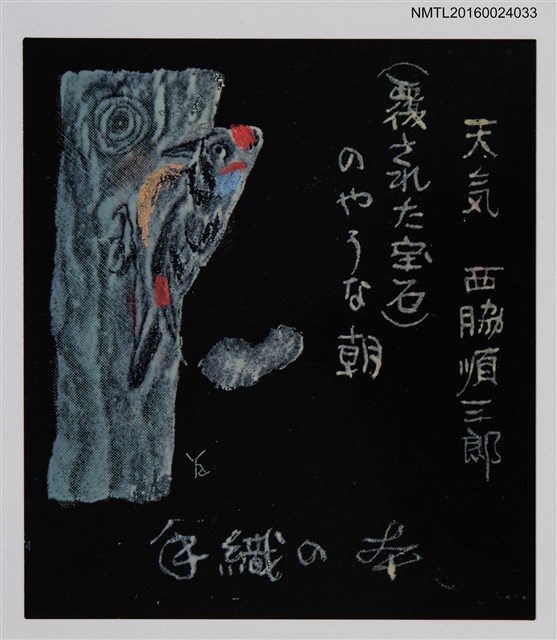 NMTL20160024033
天気　西脇順三郎
（覆された宝石）
のやうな朝
手織の本